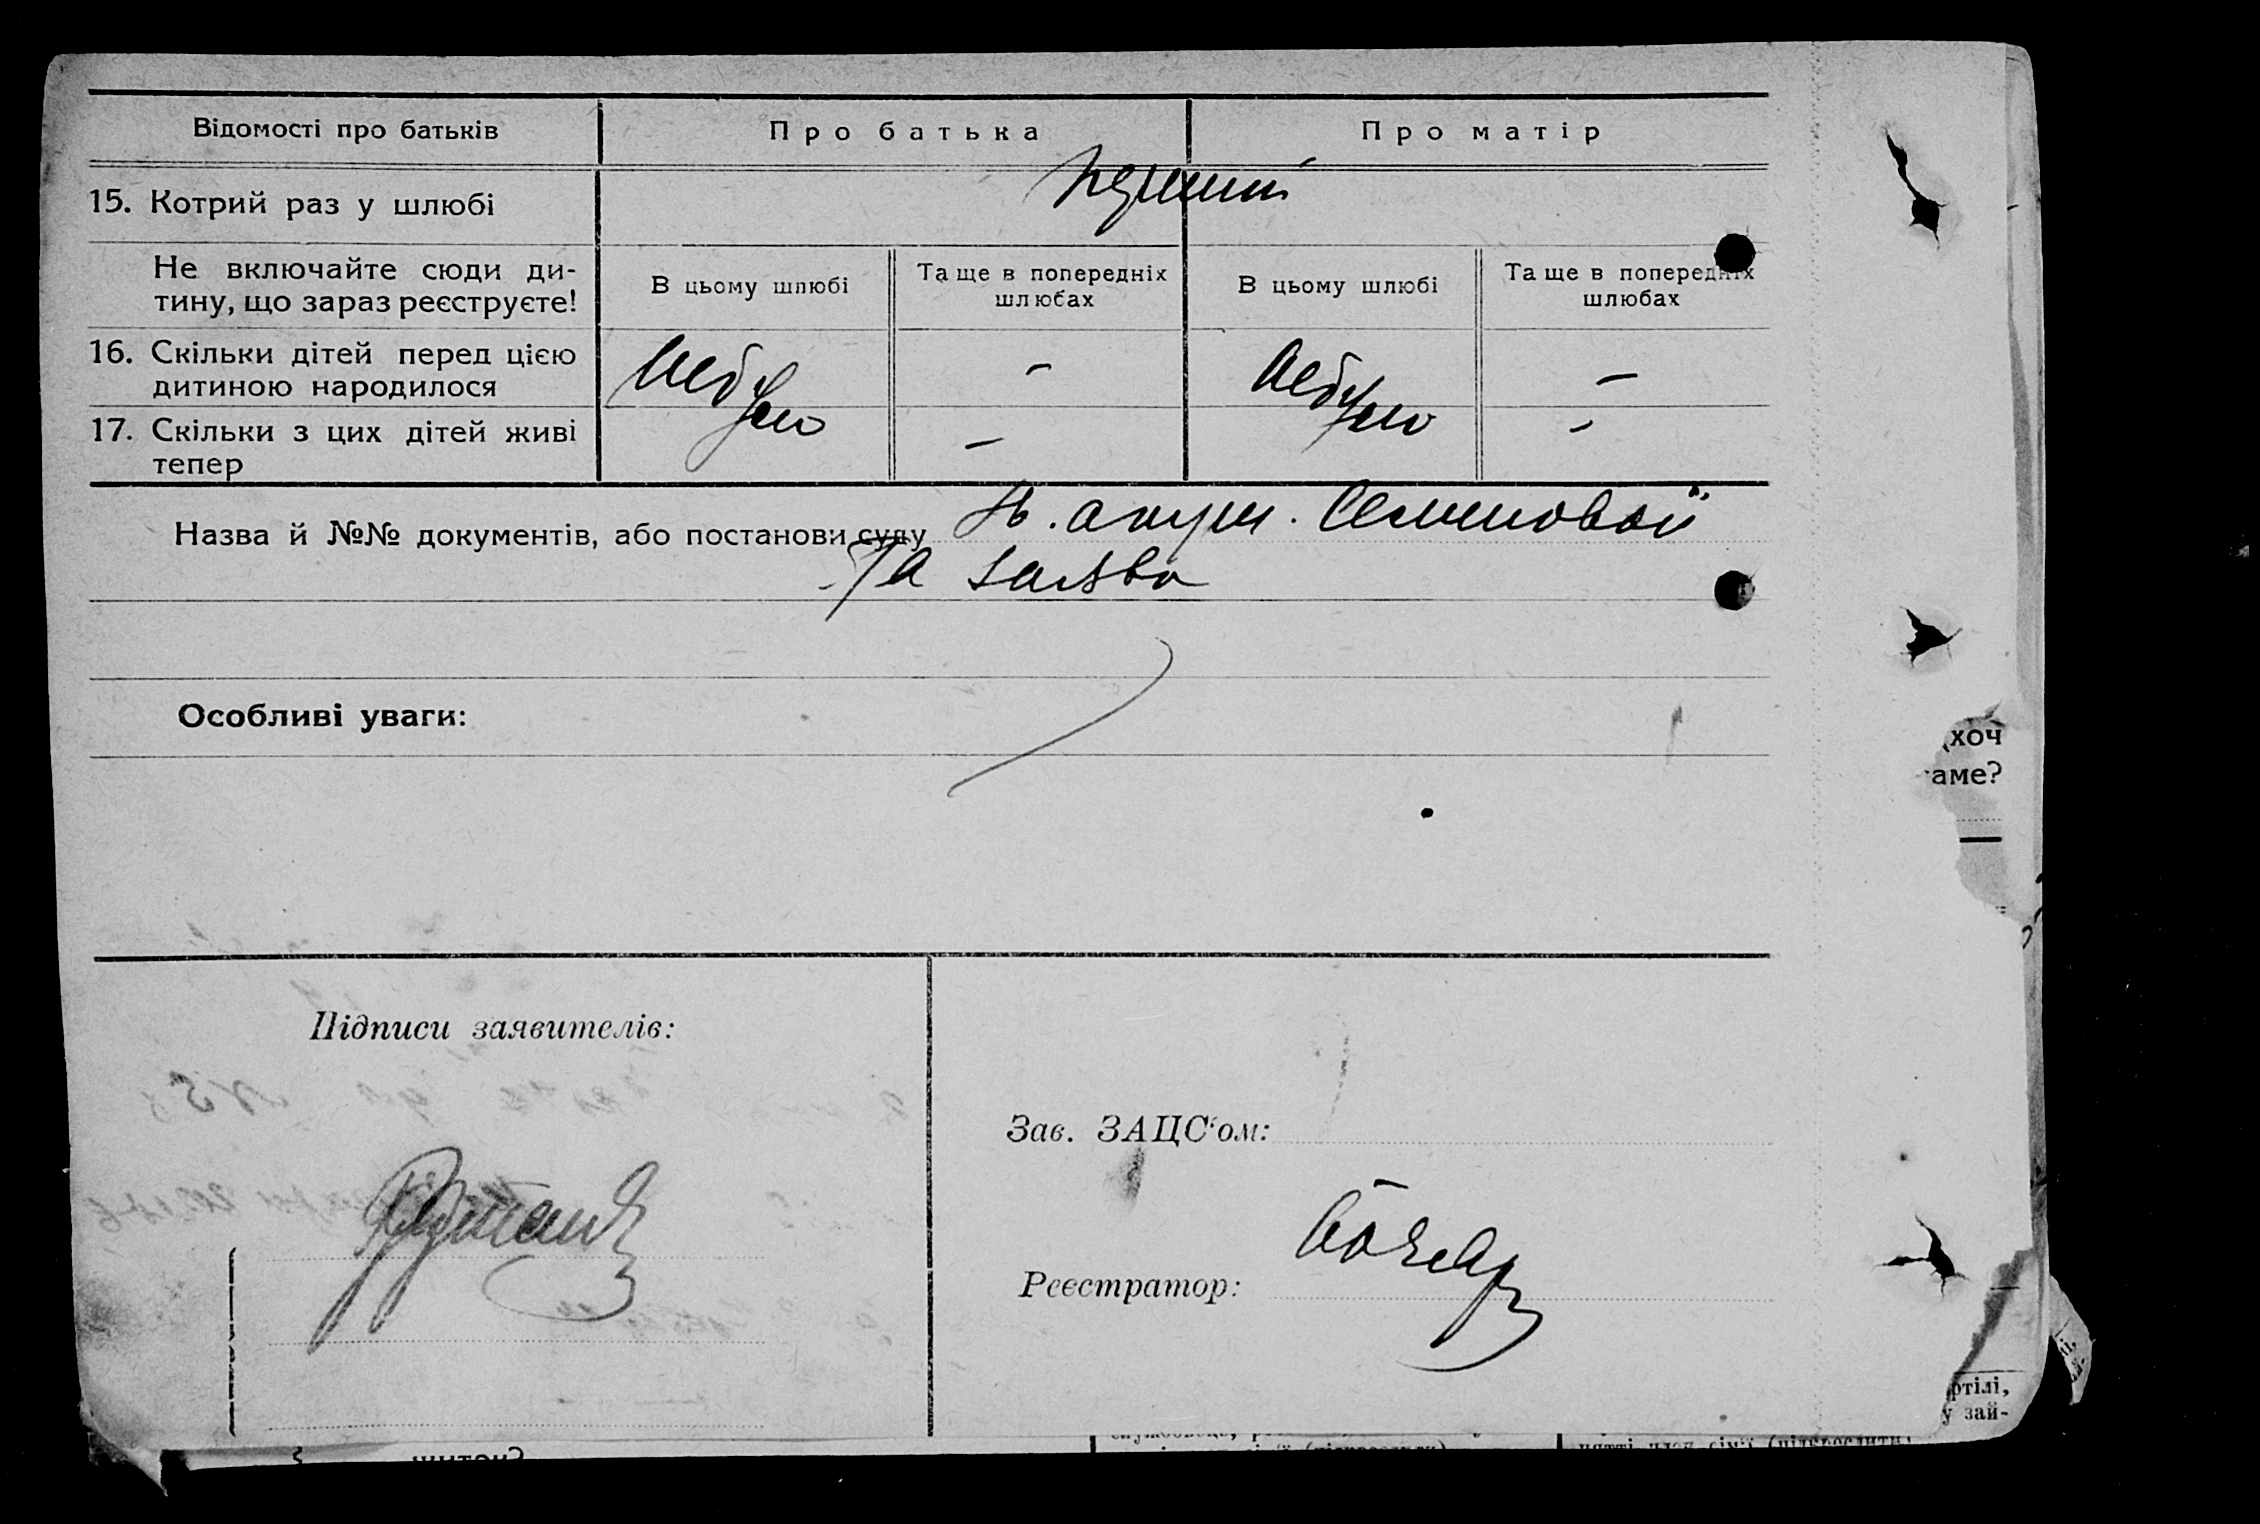 Відомості про батьків
Про батька
Про матір
15. Котрий раз у шлюбі
перший
Не включайте сюди ди-
тину, що зараз реєструєте!
В цьому шлюбі
Та ще в попередніх
шлюбах
В цьому шлюбі
Та ще в попередніх
шлюбах
16. Скільки дітей перед цією
дитиною народилося
не було
–
не було
–
17. Скільки з цих дітей живі
тепер
–
–
Назва й №№ документів, або постанови суду
акуш. Семеновой
та заява
Особливі уваги:
Підписи заявителів:
Зав. ЗАЦС‘ом:
Реєстратор:
хоч
аме?
ртілі,
у зай-